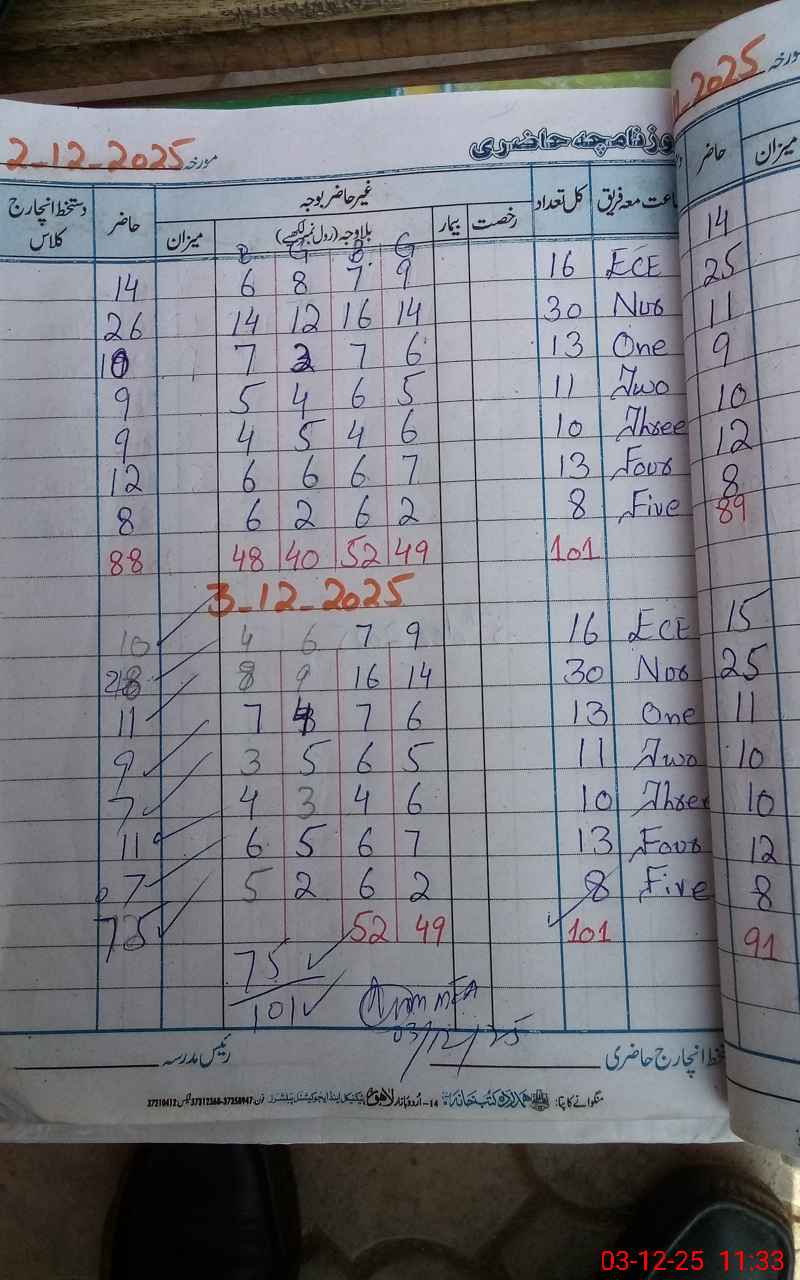 2-12-2025 مورخہ
وزنامچہ حاضری
اعت معہ فریق کل تعداد غیر حاضر بوجہ حاضر دستخط انچارج کلاس
رخصت بیمار بلاوجہ (رول نمبر لکھیے) میزان
B G B G
14 6 8 7 9 16 ECE
26 14 12 16 14 30 Nur
10 7 3 7 6 13 One
9 5 4 6 5 11 Two
9 4 5 4 6 10 Three
12 6 6 6 7 13 Four
8 6 2 6 2 8 Five
88 48 40 52 49 101
3-12-2025
10 4 6 7 9 16 ECE
8 9 16 14 30 Nur
11 7 4 7 6 13 One
9 3 5 6 5 11 Two
7 4 3 4 6 10 Three
11 6 5 6 7 13 Four
7 5 2 6 2 8 Five
52 49 101
75
101
MEA
03/12/25
خط انچارج حاضری رئیس مدرسہ
منگوانے کا پتا: ہمدرد کتب خانہ 14-اُردو بازار لاہور ٹیکنیکل اینڈ ایجوکیشنل پبلشرز فون: 37312368-37358947 فیکس 37210412
2025 مورخہ
حاضر میزان
14
25
11
9
10
12
8
89
15
25
11
10
10
12
8
91
03-12-25 11:33